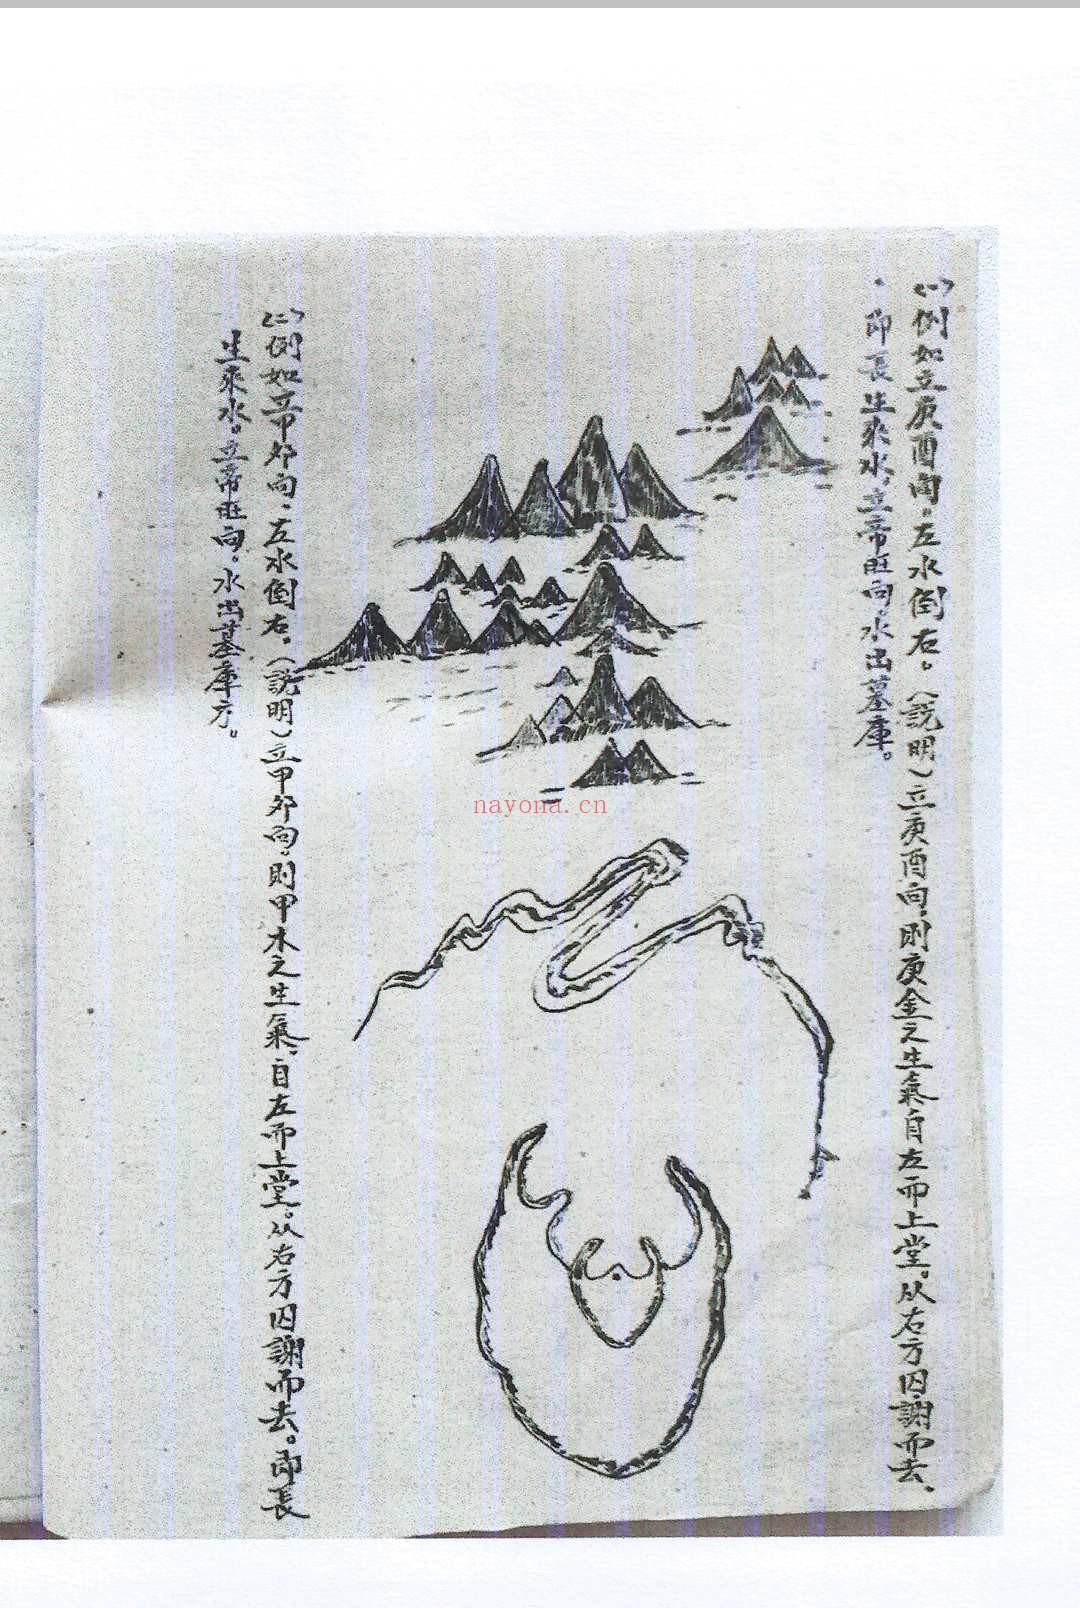 (一)例如立庚酉向。左水倒右。(説明)立庚酉向,則庚金之生氣自左而上堂。从右方囚謝而去、
即長生來水,立帝旺向,水出墓庫。
(二)例如立甲卯向、左水倒右。(説明)立甲卯向。則甲木之生氣,自左而上堂。从右方囚謝而去。即長
生來水。立帝旺向。水出墓庫方。
nayona.cn